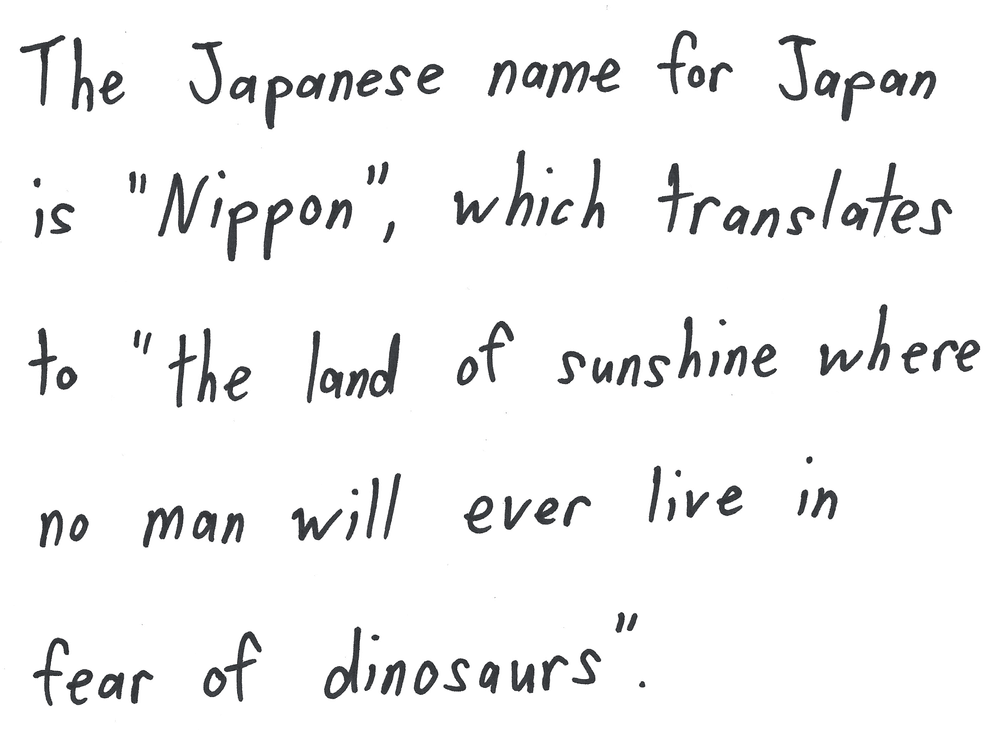 The Japanese name for Japan
is "Nippon", which translates
to "the land of sunshine where
no man will ever live in
fear of dinosaurs".